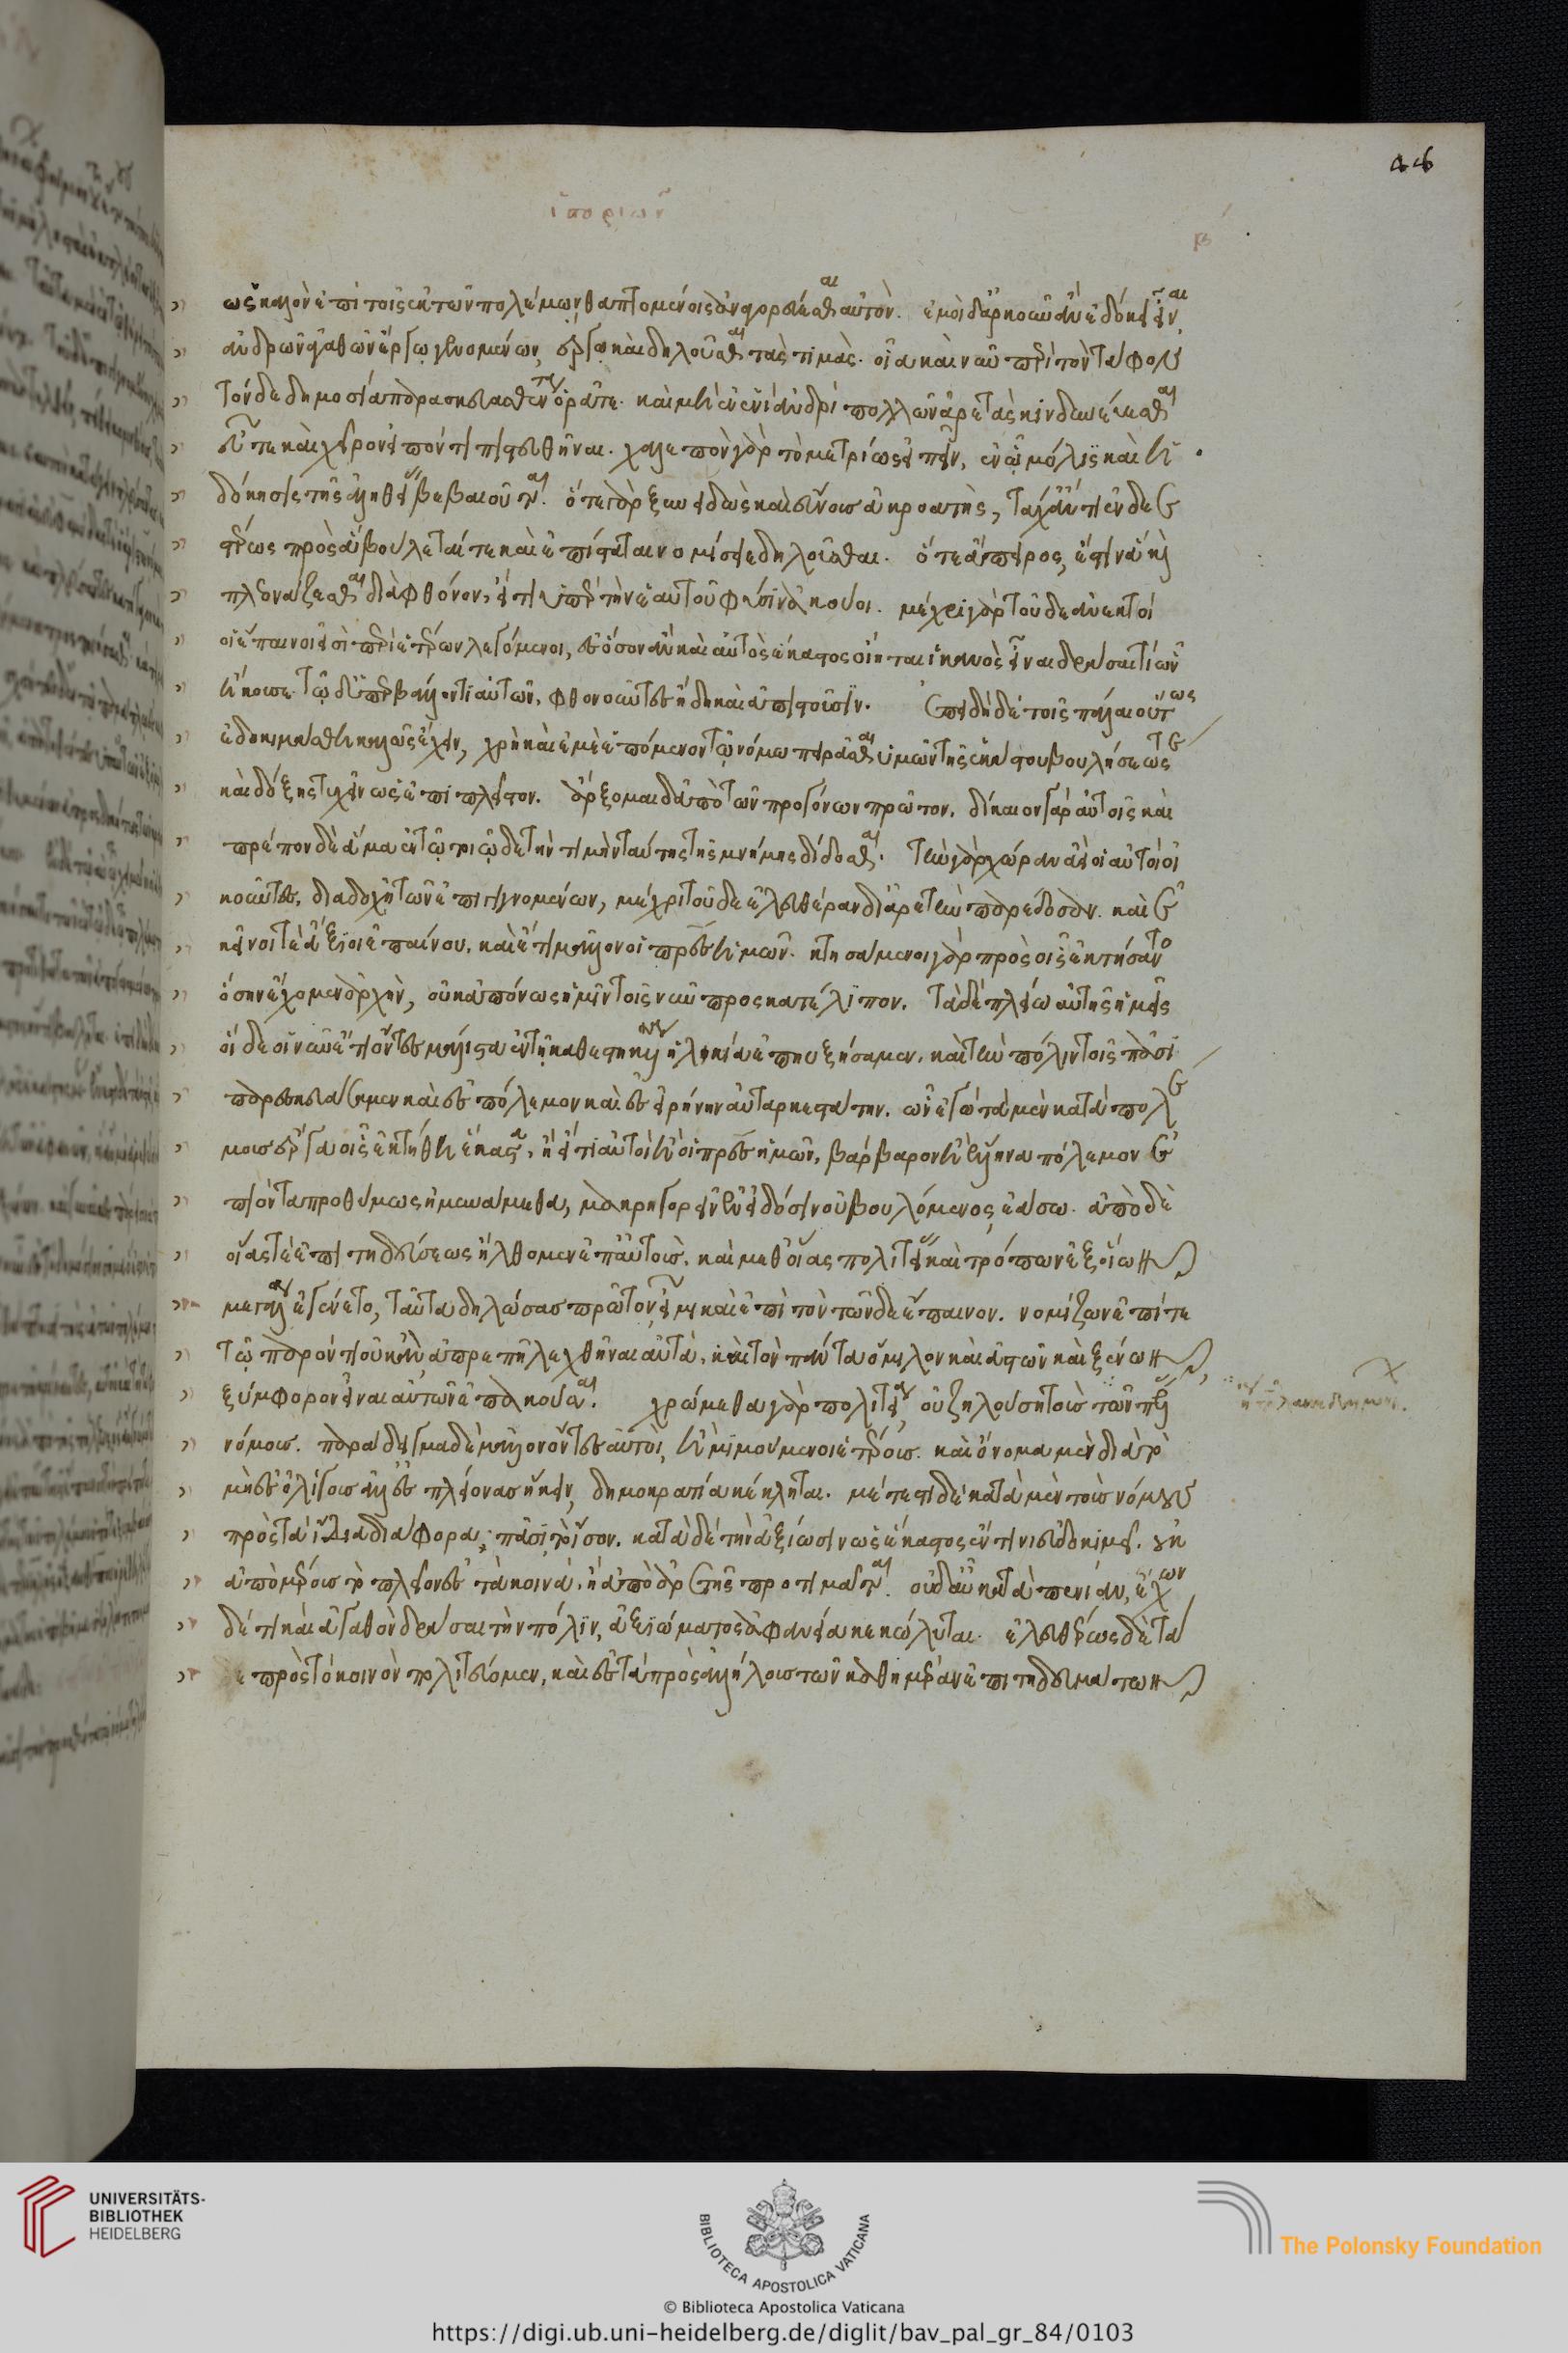 46
ἱστοριῶν
β
ὡς καλὸν ἐπὶ τοῖς ἐκ τῶν πολέμων θαπτομένοις ἀγορεύεσθαι αὐτόν. ἐμοὶ δ' ἀρκοῦν ἂν ἐδόκει εἶναι
ἀνδρῶν ἀγαθῶν ἔργῳ γενομένων, ἔργῳ καὶ δηλοῦσθαι τὰς τιμάς. οἷα καὶ νῦν περὶ τὸν τάφον
τόνδε δημοσίᾳ παρασκευασθέντα ὁρᾶτε. καὶ μὴ ἐν ἑνὶ ἀνδρὶ πολλῶν ἀρετὰς κινδυνεύεσθαι
εὖ τε καὶ χεῖρον εἰπόντι πιστευθῆναι. χαλεπὸν γὰρ τὸ μετρίως εἰπεῖν, ἐν ᾧ μόλις καὶ ἡ
δόκησις τῆς ἀληθείας βεβαιοῦται. ὅ τε γὰρ ξυνειδὼς καὶ εὔνους ἀκροατής, τάχ' ἄν τι ἐνδε
εστέρως πρὸς ἃ βούλεταί τε καὶ ἐπίσταται νομίσειε δηλοῦσθαι. ὅ τε ἄπειρος, ἔστιν ἃ καὶ
πλεονάζεσθαι διὰ φθόνον, εἴ τι ὑπὲρ τὴν ἑαυτοῦ φύσιν ἀκούοι. μέχρι γὰρ τοῦδε ἀνεκτοὶ
οἱ ἔπαινοί εἰσι περὶ ἑτέρων λεγόμενοι, ἐς ὅσον ἂν καὶ αὐτὸς ἕκαστος οἴηται ἱκανὸς εἶναι δρᾶσαί τι ὧν
ἤκουσε. τῷ δ' ὑπερβάλλοντι αὐτῶν, φθονοῦντες ἤδη καὶ ἀπιστοῦσιν. Ἐπειδὴ δὲ τοῖς πάλαι οὕτως
ἐδοκιμάσθη καλῶς ἔχειν, χρὴ καὶ ἐμὲ ἑπόμενον τῷ νόμῳ πειρᾶσθαι ὑμῶν τῆς ἑκάστου βουλήσεώς τε
καὶ δόξης τυχεῖν ὡς ἐπὶ πλεῖστον. ἄρξομαι δ' ἀπὸ τῶν προγόνων πρῶτον. δίκαιον γὰρ αὐτοῖς καὶ
πρέπον δὲ ἅμα ἐν τῷ τοιῷδε τὴν τιμὴν ταύτης τῆς μνήμης δίδοσθαι. τὴν γὰρ χώραν ἀεὶ οἱ αὐτοὶ οἰ
κοῦντες, διαδοχῇ τῶν ἐπιγιγνομένων, μέχρι τοῦδε ἐλευθέραν δι' ἀρετὴν παρέδοσαν. καὶ ἐ
κεῖνοί τε ἄξιοι ἐπαίνου, καὶ ἔτι μᾶλλον οἱ πατέρες ἡμῶν. κτησάμενοι γὰρ πρὸς οἷς ἐκτήσαντο
ὅσην ἔχομεν ἀρχὴν, οὐκ ἀπόνως ἡμῖν τοῖς νῦν προσκατέλιπον. τὰ δὲ πλείω αὐτῆς ἡμεῖς
οἵδε οἱ νῦν ἔτι ὄντες μάλιστα ἐν τῇ καθεστηκυίᾳ ἡλικίᾳ ἐπηυξήσαμεν, καὶ τὴν πόλιν τοῖς πᾶσι
παρεσκευάσαμεν καὶ ἐς πόλεμον καὶ ἐς εἰρήνην αὐταρκεστάτην. ὧν ἐγὼ τὰ μὲν κατὰ πολέ
μους ἔργα οἷς ἕκαστα ἐκτήθη, ἢ εἴ τι αὐτοὶ ἢ οἱ πατέρες ἡμῶν, βάρβαρον ἢ ἕλληνα πόλεμον ἐ
πιόντα προθύμως ἠμυνάμεθα, μακρηγορεῖν ἐν εἰδόσιν οὐ βουλόμενος ἐάσω. ἀπὸ δὲ
οἵας τε ἐπιτηδεύσεως ἤλθομεν ἐπ' αὐτούς. καὶ μεθ' οἵας πολιτείας καὶ τρόπων ἐξ οἵων
μεγάλα ἐγένετο, ταῦτα δηλώσας πρῶτον, εἶμι καὶ ἐπὶ τὸν τῶνδε ἔπαινον. νομίζων ἐπί τε
τῷ παρόντι οὐκ ἂν ἀπρεπῆ λεχθῆναι αὐτά, καὶ τὸν πάντα ὅμιλον καὶ ἀστῶν καὶ ξένων
ξύμφορον εἶναι αὐτῶν ἐπακοῦσαι. χρώμεθα γὰρ πολιτείᾳ, οὐ ζηλούσῃ τοὺς τῶν πέλας
νόμους. παράδειγμα δὲ μᾶλλον ὄντες αὐτοί, ἢ μιμούμενοι ἑτέρους. καὶ ὄνομα μὲν διὰ τὸ
μὴ ἐς ὀλίγους ἀλλ' ἐς πλείονας ἥκειν, δημοκρατία κέκληται. μέτεστι δὲ κατὰ μὲν τοὺς νόμους
πρὸς τὰ ἴδια διάφορα, πᾶσι τὸ ἴσον. κατὰ δὲ τὴν ἀξίωσιν ὡς ἕκαστος ἔν τινι εὐδοκιμεῖ. οὐκ
ἀπὸ μέρους τὸ πλεῖον ἐς τὰ κοινά, ἢ ἀπὸ ἀρετῆς προτιμᾶται. οὐδ' αὖ κατὰ πενίαν, ἔχων
δέ τι καὶ ἀγαθὸν δρᾶσαι τὴν πόλιν, ἀξιώματος ἀφανείᾳ κεκώλυται. ἐλευθέρως δὲ τά
τε πρὸς τὸ κοινὸν πολιτεύομεν, καὶ ἐς τὰ πρὸς ἀλλήλους τῶν καθ' ἡμέραν ἐπιτηδευμάτων
UNIVERSITÄTS-
BIBLIOTHEK
HEIDELBERG
BIBLIOTECA APOSTOLICA VATICANA
The Polonsky Foundation
© Biblioteca Apostolica Vaticana
https://digi.ub.uni-heidelberg.de/diglit/bav_pal_gr_84/0103